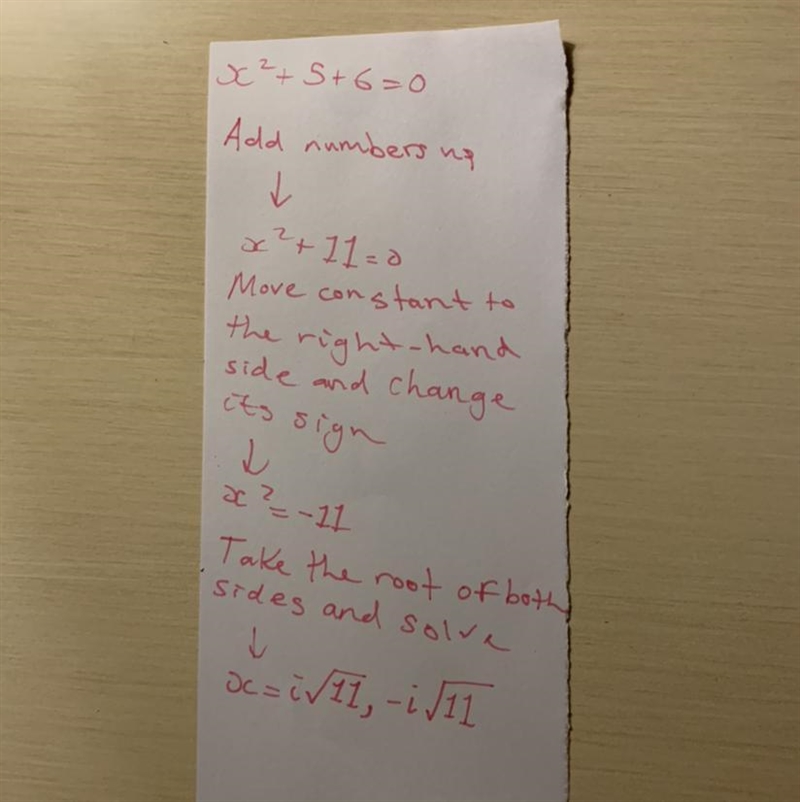 x²+5+6=0
Add numbers up
↓
x²+11=0
Move constant to
the right-hand
side and change
its sign
↓
x²=-11
Take the root of both
sides and solve
↓
x=i√11, -i√11